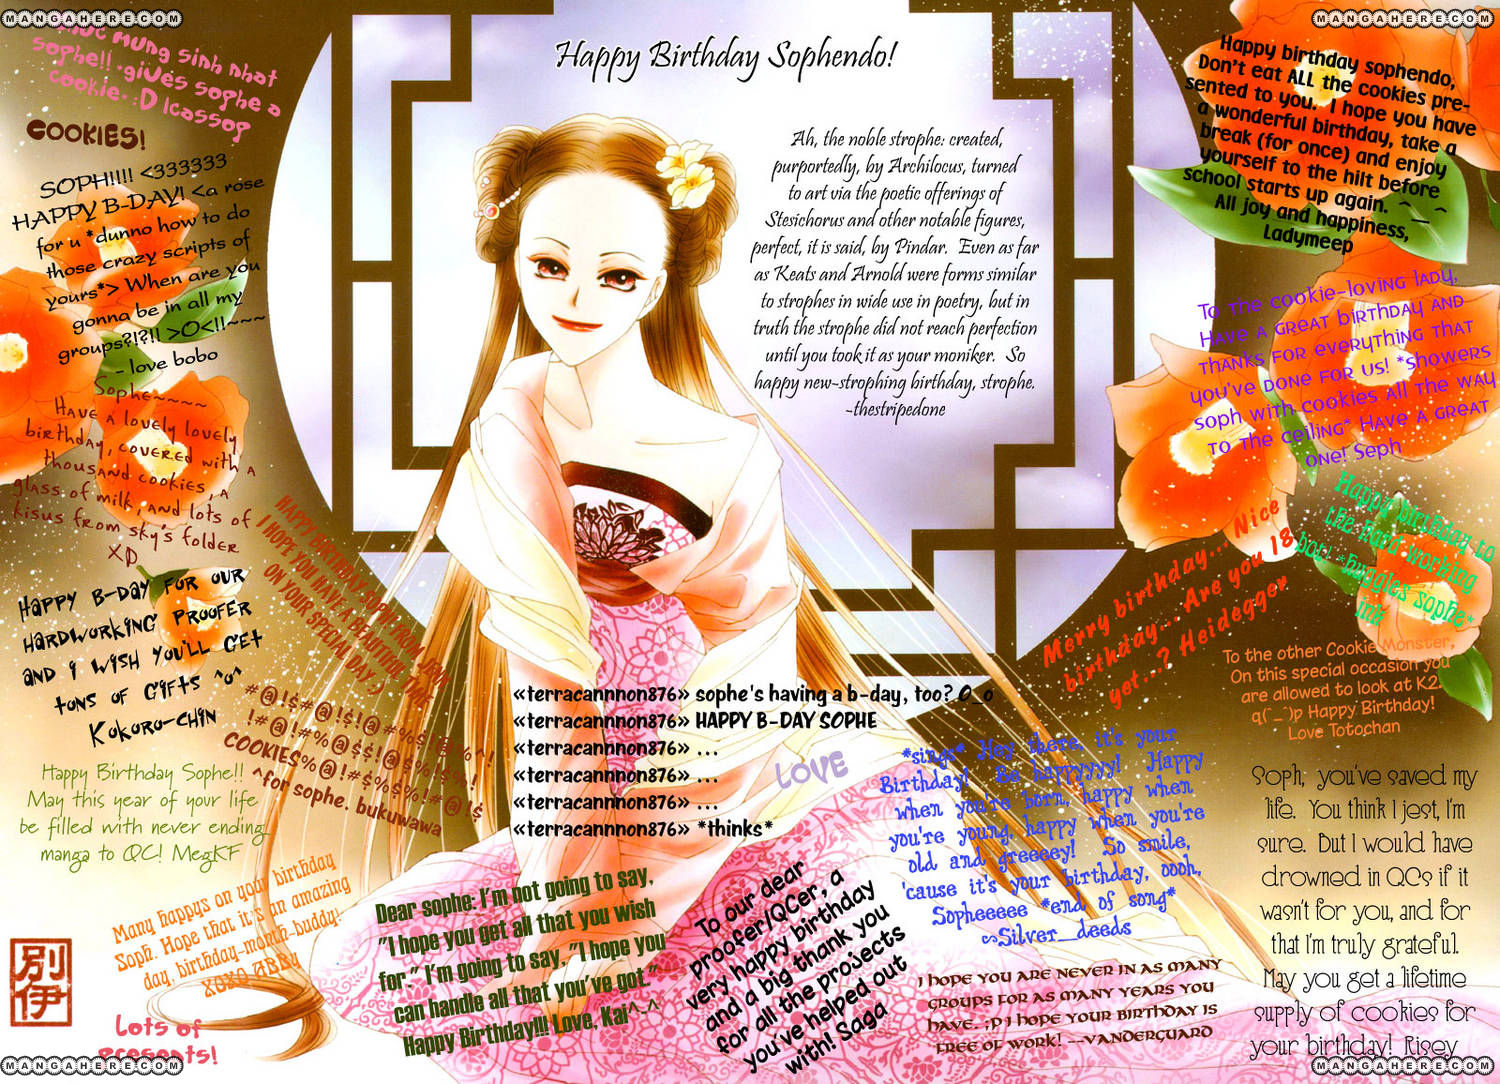 MANGAHERE.COM
MANGAHERE.COM
Happy Birthday Sophendo!
mung sinh nhat
sophe!! *gives sophe a
cookie* :D lcassop
COOKIES!
SOPH!!!! <333333
HAPPY B-DAY! <a rose
for u *dunno how to do
those crazy scripts of
yours*> When are you
gonna be in all my
groups?!?!! >O<!!~~~
- love bobo
Sophe~~~~
Have a lovely lovely
birthday, covered with a
thousand cookies, a
glass of milk, and lots of
kisus from sky's folder
XD
Happy B-day for our
hardworking proofer
and i wish you'll get
tons of gifts ^o^
Kokoro-chin
HAPPY BIRTHDAY SOPH, FROM
I HOPE YOU HAVE A BEAUTIFUL TIME
ON YOUR SPECIAL DAY :)
COOKIES%@!#$%$%!#@!$
^for sophe. bukuwawa
Happy Birthday Sophe!!
May this year of your life
be filled with never ending
manga to QC! MegKF
Many happys on your birthday
Soph. Hope that it's an amazing
day, birthday-month-buddy!
XOXO ABBy
別伊
Lots of
presents!
Ah, the noble strophe: created,
purportedly, by Archilocus, turned
to art via the poetic offerings of
Stesichorus and other notable figures,
perfect, it is said, by Pindar.  Even as far
as Keats and Arnold were forms similar
to strophes in wide use in poetry, but in
truth the strophe did not reach perfection
until you took it as your moniker.  So
happy new-strophing birthday, strophe.
~thestripedone
Happy birthday sophendo,
Don't eat ALL the cookies pre-
sented to you.  I hope you have
a wonderful birthday, take a
break (for once) and enjoy
yourself to the hilt before
school starts up again.  ^_^
All joy and happiness,
Ladymeep
To the cookie-loving lady,
Have a great birthday and
thanks for everything that
you've done for us! *showers
soph with cookies all the way
to the ceiling* Have a great
one! Seph
Happy birthday to
the hard working
boy! *huggles sophe*
ink
Merry birthday... Nice
birthday... Are you 18
yet...? Heidegger
To the other Cookie Monster,
On this special occasion you
are allowed to look at K2.
q(´_`)p Happy Birthday!
Love Totochan
«terracannnon876» sophe's having a b-day, too? O_o
«terracannnon876» HAPPY B-DAY SOPHE
«terracannnon876» ...
«terracannnon876» ...
«terracannnon876» ...
«terracannnon876» *thinks*
LOVE
*sings* Hey there, it's your
Birthday!  Be happyyyy!  Happy
when you're born, happy when
you're young, happy when you're
old and greeeey!  So smile,
'cause it's your birthday, oooh,
Sopheeeee *end of song*
~Silver_deeds
Soph,  you've saved my
life.  You think I jest, I'm
sure.  But I would have
drowned in QCs if it
wasn't for you, and for
that I'm truly grateful.
May you get a lifetime
supply of cookies for
your birthday!  Risey
Dear sophe: I'm not going to say,
"I hope you get all that you wish
for." I'm going to say, "I hope you
can handle all that you've got."
Happy Birthday!!! Love, Kai^_^
To our dear
proofer/QCer, a
very happy birthday
and a big thank you
for all the projects
you've helped out
with! Saga
I hope you are never in as many
groups for as many years you
have. ;p I hope your birthday is
free of work! --Vanderguard
MANGAHERE.COM
MANGAHERE.COM